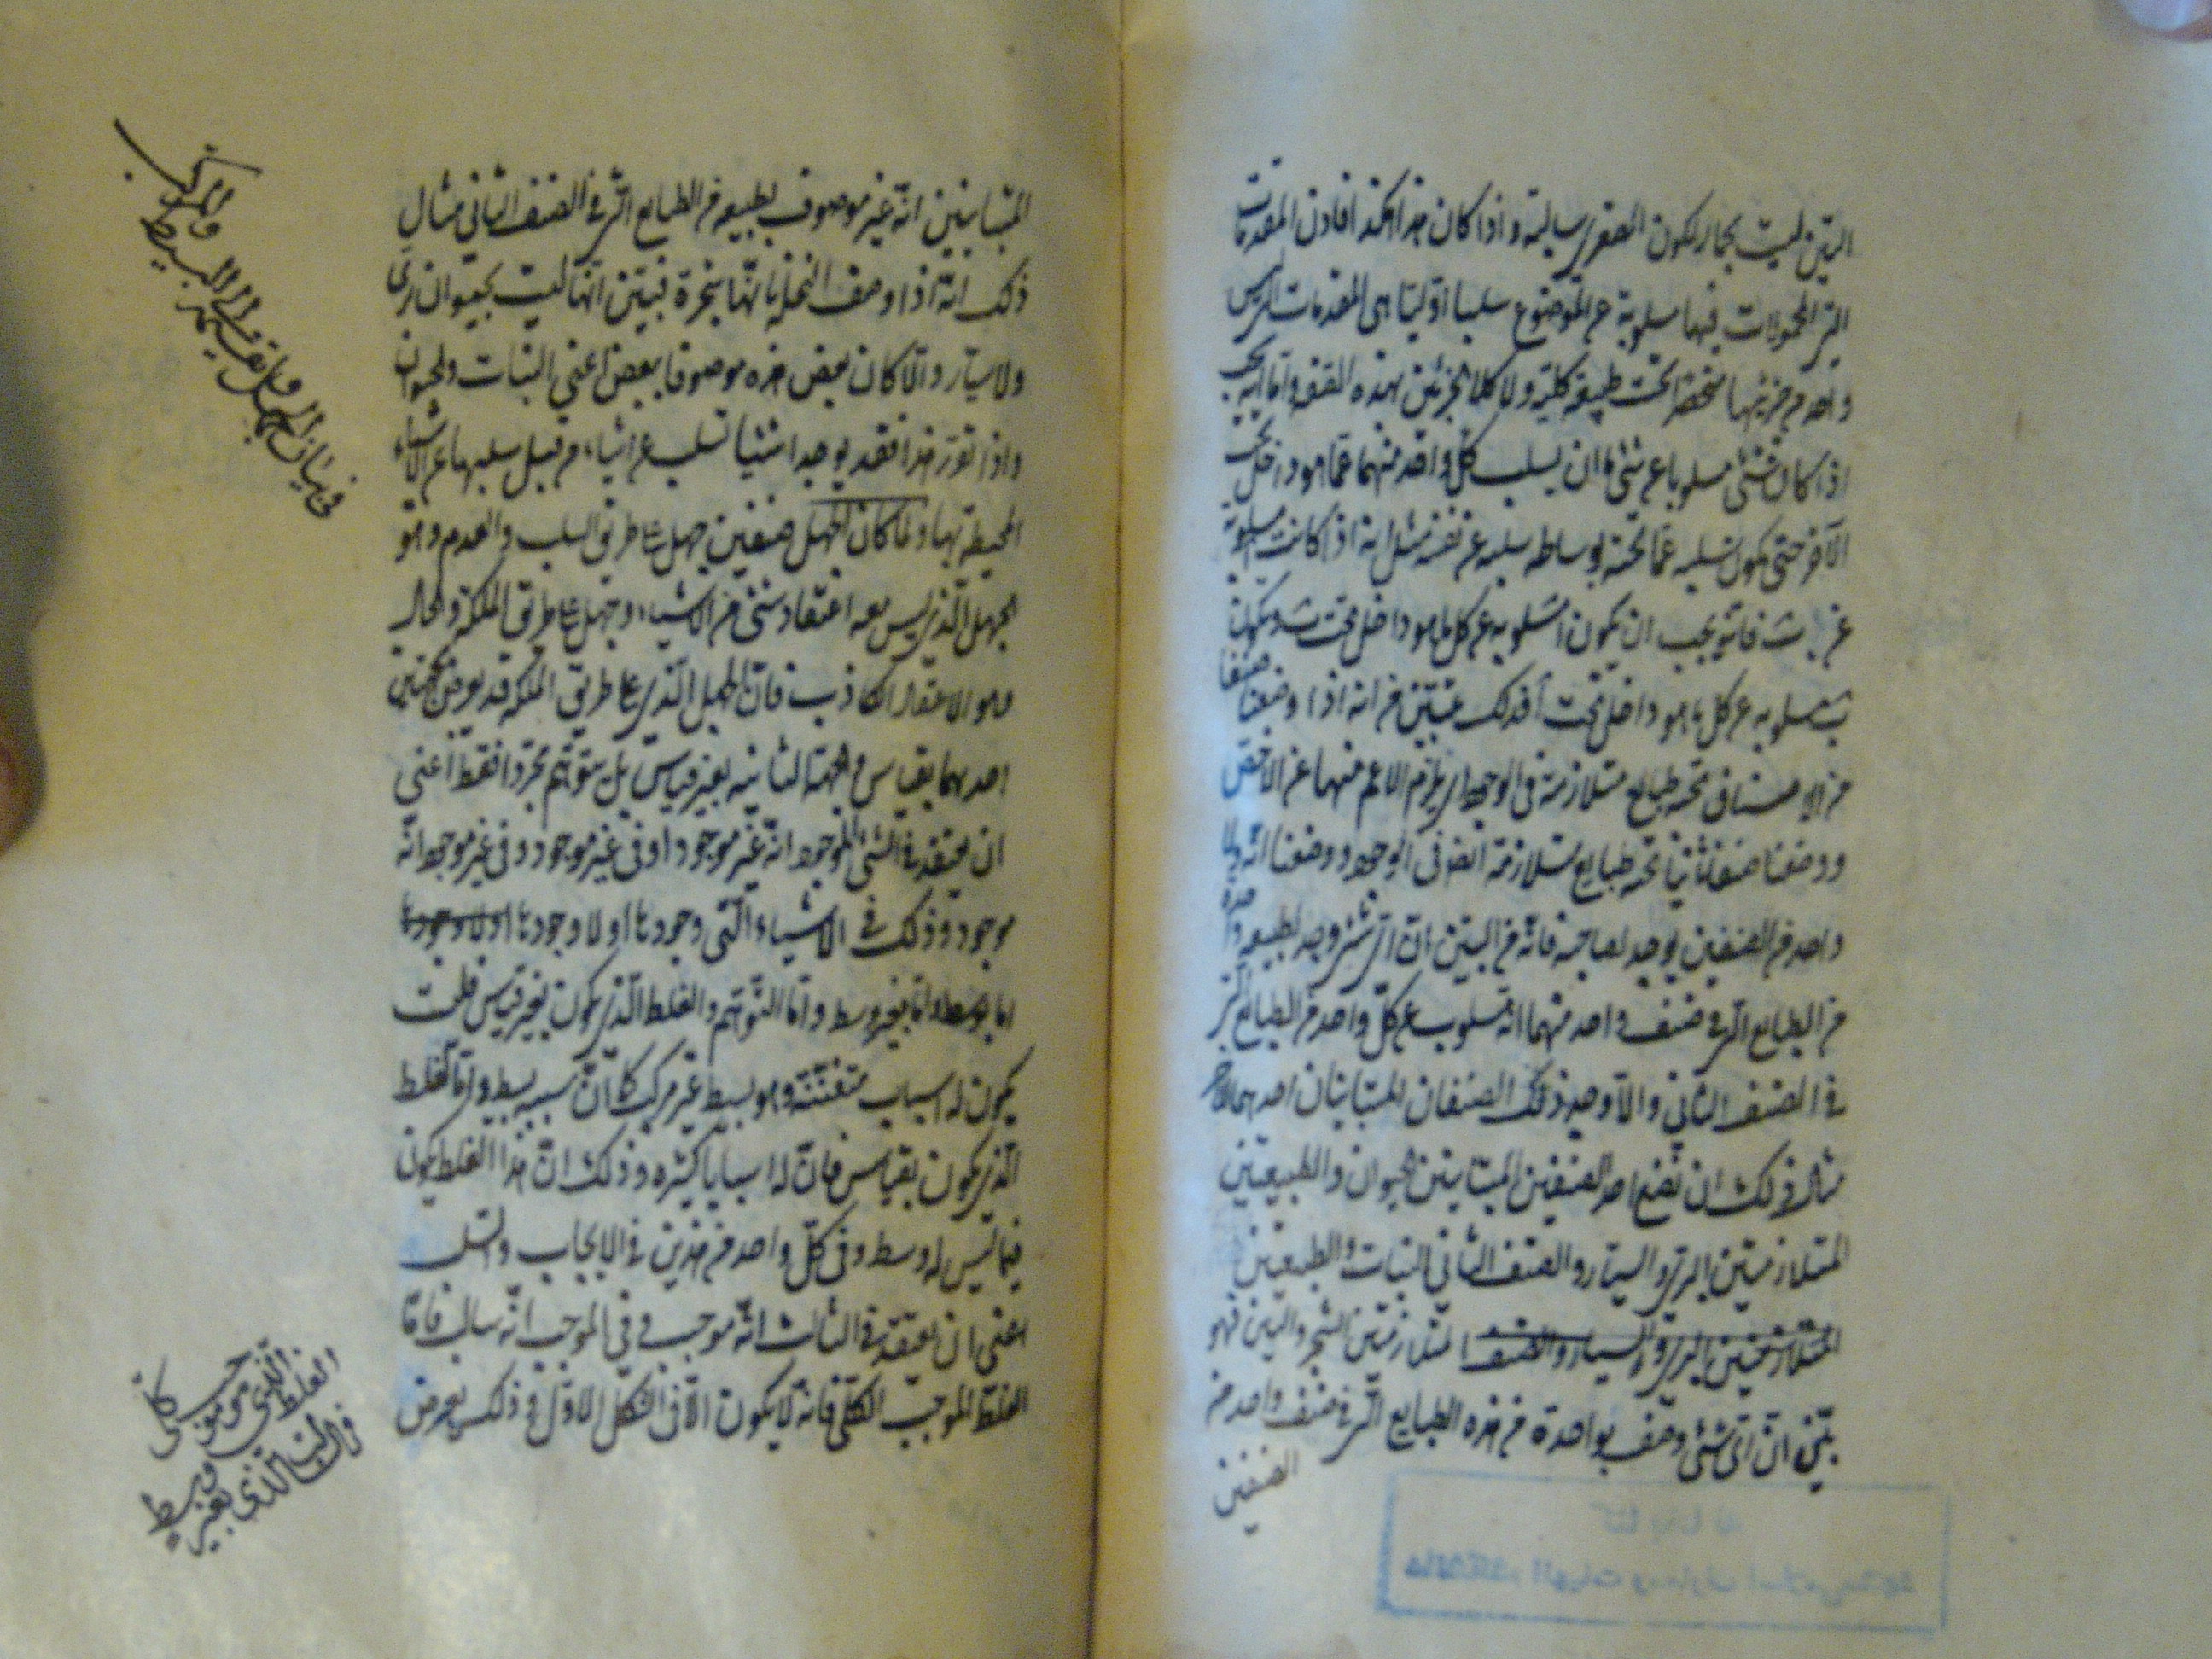 التي ليست بحار لكون الصغرى سالبة واذا كان هذا هكذا فاذن المقدمات
التي المحمولات فيها مسلوبة عن الموضوع سلبا اوليا هى المقدمات التي ليس
واحد من جزئيها منحصرا تحت طبيعة كلية ولا كلا الجزئين بهذه الصفة واما انه يجب
اذا كان شئ مسلوبا عن شئ ما ان يسلب كل واحد منهما عما هو داخل تحت
الآخر حتى يكون سلبه عما تحته بوساطة سلبه عن نفسه مثل انه اذا كانت مسلوبة
عن ب فانه يجب ان يكون ا مسلوبة عن كل ما هو داخل تحت ب ويكون
ب مسلوبة عن كل ما هو داخل تحت ا فذلك يتبين من انه اذا وضعنا صنفا
من الاصناف تحته طبايع متلازمة فى الوجود اى يلزم الاعم منهما عن الاخص
ووضعنا صنفا ثانيا تحته طبايع متلازمة ايضا فى الوجود ووضعنا انه ولا
واحد من الصنفين يوجد لصاحبه فانه من البين ان اى شئ وجد لطبيعة واحدة
من الطبايع التي فى صنف واحد منهما انه مسلوب عن كل واحد من الطبايع التي
فى الصنف الثاني والا وجد ذلك الصنفان المتباينان احدهما للاخر
مثال ذلك ان نضع احد الصنفين المتباينين الحيوان والطبيعتين
المتلازمتين البرى والسيار والصنف الثاني النبات والطبيعتين
المتلازمتين البرى والسيار والصنف المتلازمتين الشجر والتين فهو
بين ان اى شئ وصف بواحدة من هذه الطبايع التي فى صنف واحد من
الصنفين
المتباينين انه غير موصوف بطبيعة من الطبايع التي فى الصنف الثاني مثال
ذلك انه اذا وصف النخلة بانها شجرة فبين انها ليست بحيوان برى
ولا سيار والا كان بعض هذه موصوفا ببعض اعني النبات والحيوان
واذا تقرر هذا فقد يوجد اشياء تسلب عن اشياء من قبل سلبها عن الاشياء
المحيطة بها ولما كان الجهل صنفين جهل على طريق السلب والعدم وهو
الجهل الذي ليس معه اعتقاد شئ من الاشياء وجهل على طريق الملكة والحال
وهو الاعتقاد الكاذب فان الجهل الذي على طريق الملكة قد يعرض لجهتين
احدهما بقياس والجهة الثانية بغير قياس بل بتوهم مجرد فقط اعني
ان يعتقد فى الشئ الموجود انه غير موجود او فى غير موجود وفى غير موجود انه
موجود وذلك فى الاشياء التي وجودها او لا وجودها اولا وجودها
اما بوسط واما بغير وسط واما التوهم والغلط الذي يكون بغير قياس فلست
يكون له اسباب متفننة وهو بسيط غير مركب كما ان سببه بسيط واما الغلط
الذي يكون بقياس فان له اسبابا كثيرة وذلك ان هذا الغلط يكون
فيما ليس له وسط وفى كل واحد من هذين فى الايجاب والسلب
اعني ان يعتقد فى السالب انه موجب وفى الموجب انه سالب فاما
الغلط الموجب الكلي فانه لا يكون الا فى الشكل الاول وذلك يعرض
فى بيان الجهل وتقسيمه الى البسيط والمركب
الغلط الذي هو موجب كلى
فى السالب الذي بغير وسط